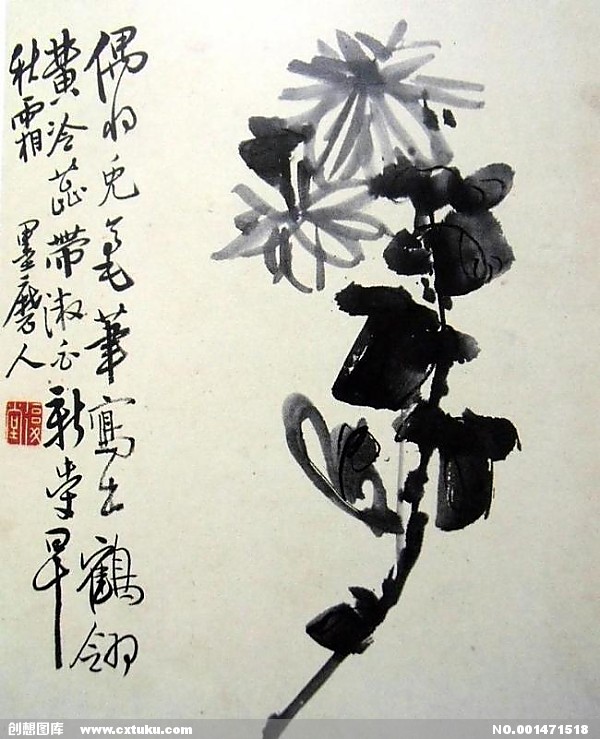 偶将兔毫筆寫出鶴翎
黄冷蕊帶新早
秋霜 墨磨人
復堂
创想图库 www.cxtuku.com NO.001471518